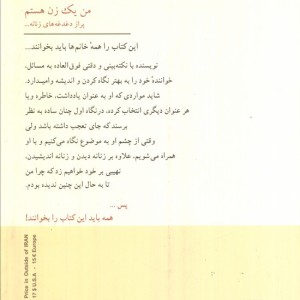 من یک زن هستم
پر از دغدغه‌های زنانه...
این کتاب را همهٔ خانم‌ها باید بخوانند...
نویسنده با نکته‌بینی و دقتی فوق‌العاده به مسائل،
خوانندهٔ خود را به بهتر نگاه کردن و اندیشه وامیدارد.
شاید مواردی که او به عنوان یادداشت، خاطره ویا
هر عنوان دیگری انتخاب کرده، درنگاه اول چنان ساده به نظر
برسند که جای تعجب داشته باشد ولی
وقتی از چشم او به موضوع نگاه می‌کنیم و با او
همراه می‌شویم، علاوه بر زنانه دیدن و زنانه اندیشیدن،
نهیبی بر خود خواهیم زد که چرا من
تا به حال این چنین ندیده بودم.
پس ...
همه باید این کتاب را بخوانند!
Price in Outside of IRAN
17 $ U.S.A - 15 € Europe